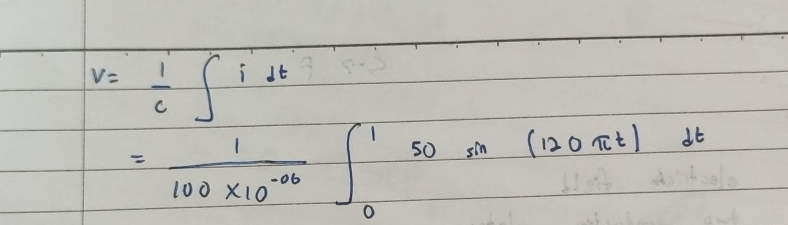 V= 1/c ∫ i dt
= 1/(100 ×10^-06) ∫_0^1 50 sin (120 πt) dt